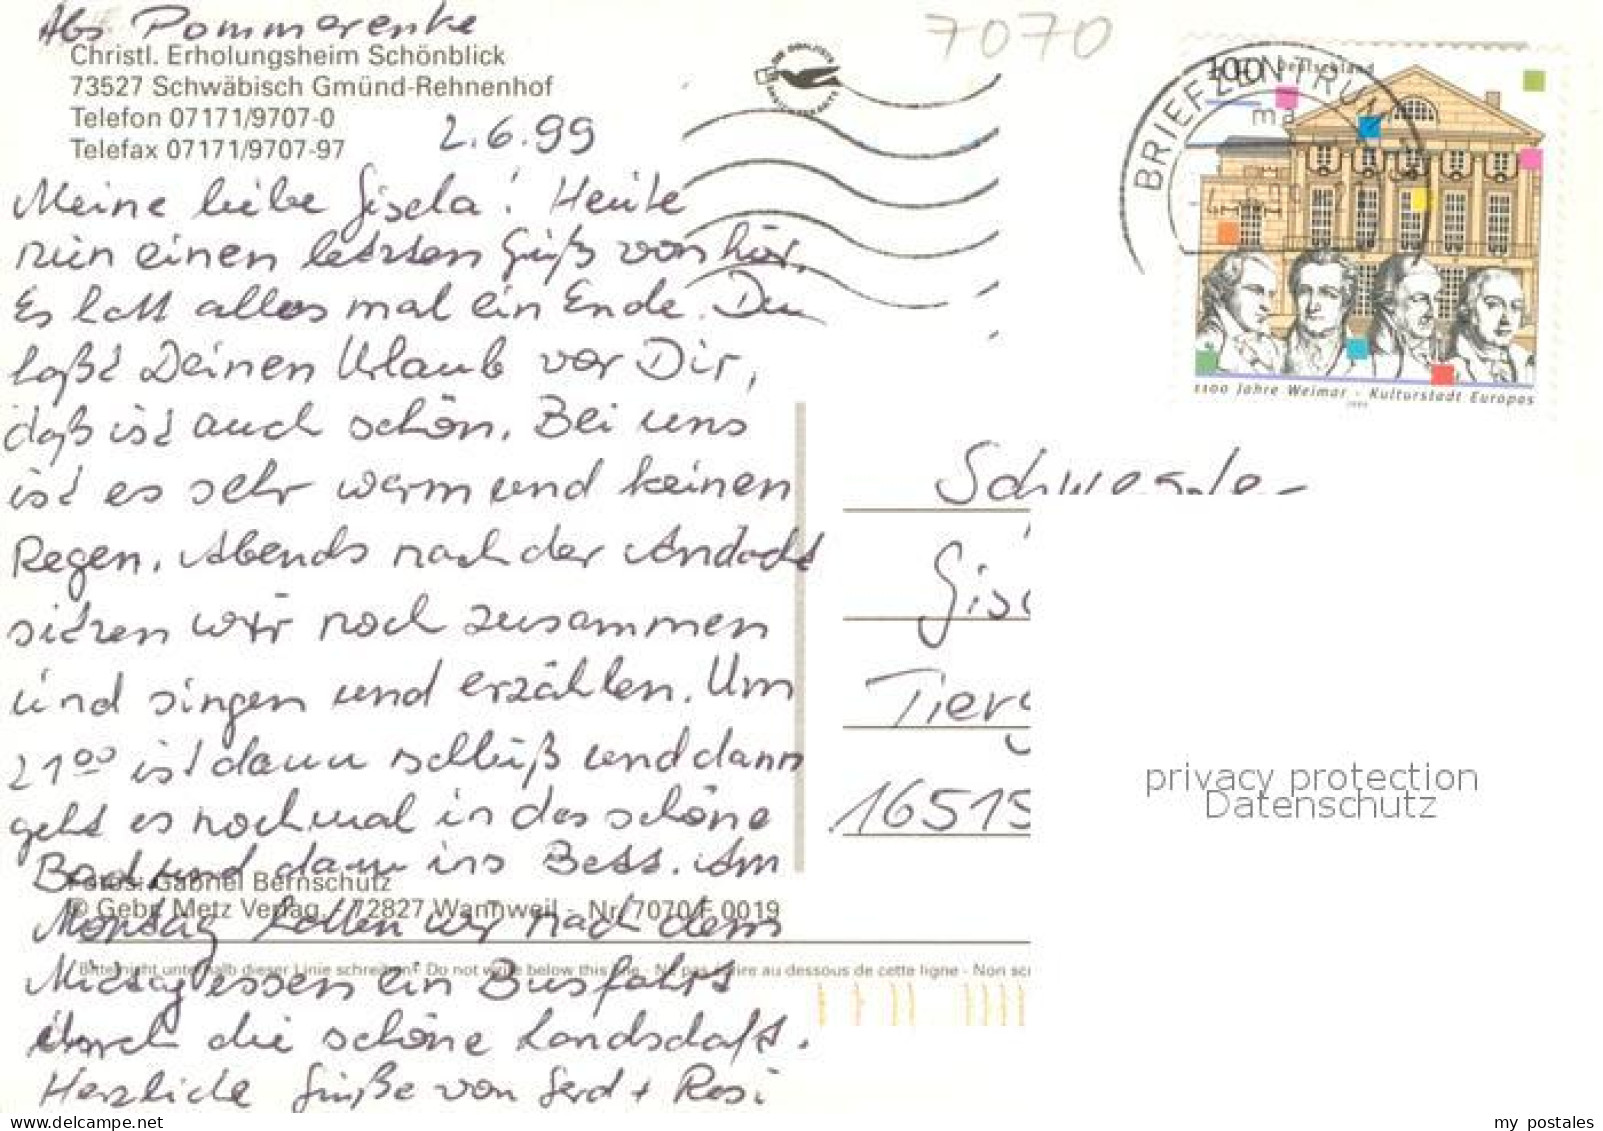 Abs Pommerenke
Christl. Erholungsheim Schönblick
73527 Schwäbisch Gmünd-Rehnenhof
Telefon 07171/9707-0
Telefax 07171/9707-97
2.6.99
7070
100 Deutschland
BRIEFZENTRUM
1100 Jahre Weimar - Kulturstadt Europas
1999
Meine liebe Gisela! Heute
nun einen letzten Gruß von hier.
Es hatt alles mal ein Ende. Du
haßt Deinen Urlaub vor Dir,
daß ist auch schön. Bei uns
ist es sehr warm und keinen
Regen. Abends nach der Andacht
sitzen wir noch zusammen
und singen und erzählen. Um
21⁰⁰ ist dann schluß und dann
geht es nochmal in das schöne
Bad und dann ins Bett. Am
Montag hatten wir nach dem
Mittagessen ein Busfahrt
durch die schöne Landschaft.
Herzliche Grüße von Gerd + Rosi
Fotos: Gabriel Bernschütz
© Gebr. Metz Verlag - 72827 Wannweil - Nr. 7070/F 0019
Bitte nicht unterhalb dieser Linie schreiben! Do not write below this line - Ne pas écrire au dessous de cette ligne - Non scr
Schwester
Gise
Tierg
16515
privacy protection
Datenschutz
my postales